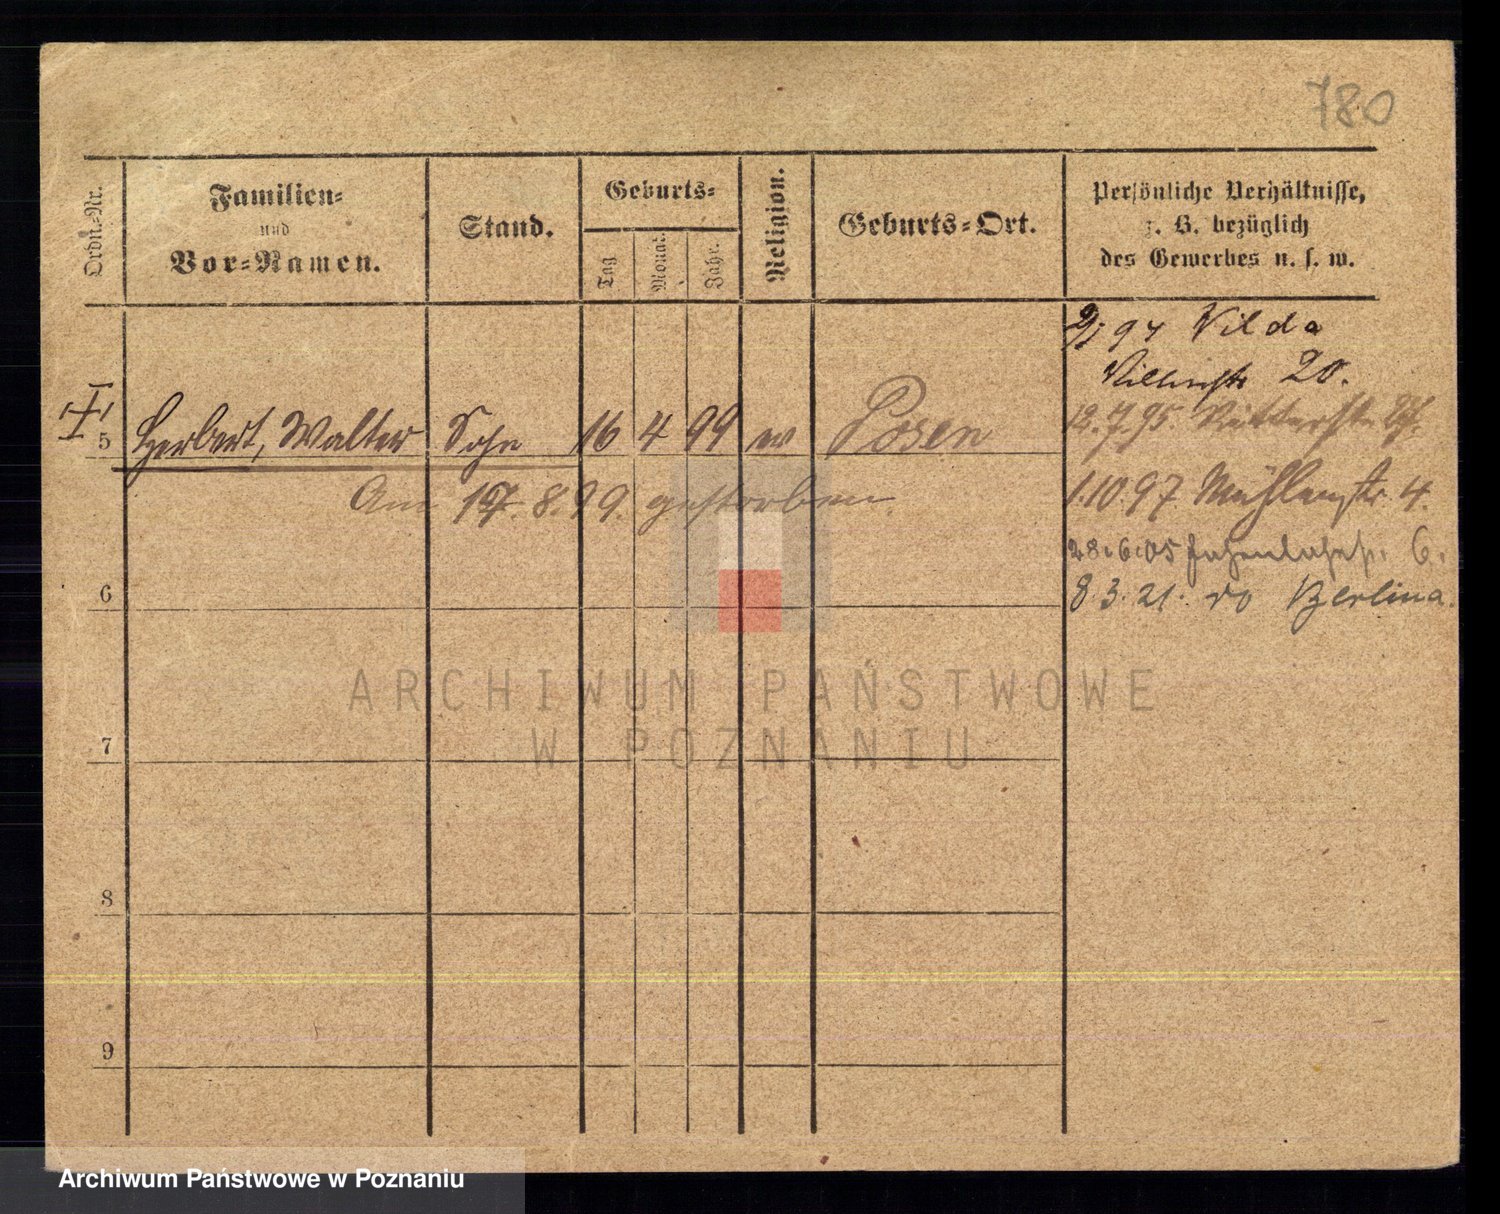 780
Ordn.-Nr.
Familien-
und
Vor-Namen.
Stand.
Geburts-
Tag
Monat.
Jahr.
Religion.
Geburts-Ort.
Persönliche Verhältnisse,
z. B. bezüglich
des Gewerbes u. s. w.
94 Wilda
20.
5 Herbert, Walter Sohn 16 4 99 Posen
12.7.95.
Am 17.8.99. gestorben.
1.10.97 Mühlenstr. 4.
28.6.05 6.
6
8.3.21. do Berlina.
7
8
9
ARCHIWUM PAŃSTWOWE
W POZNANIU
Archiwum Państwowe w Poznaniu